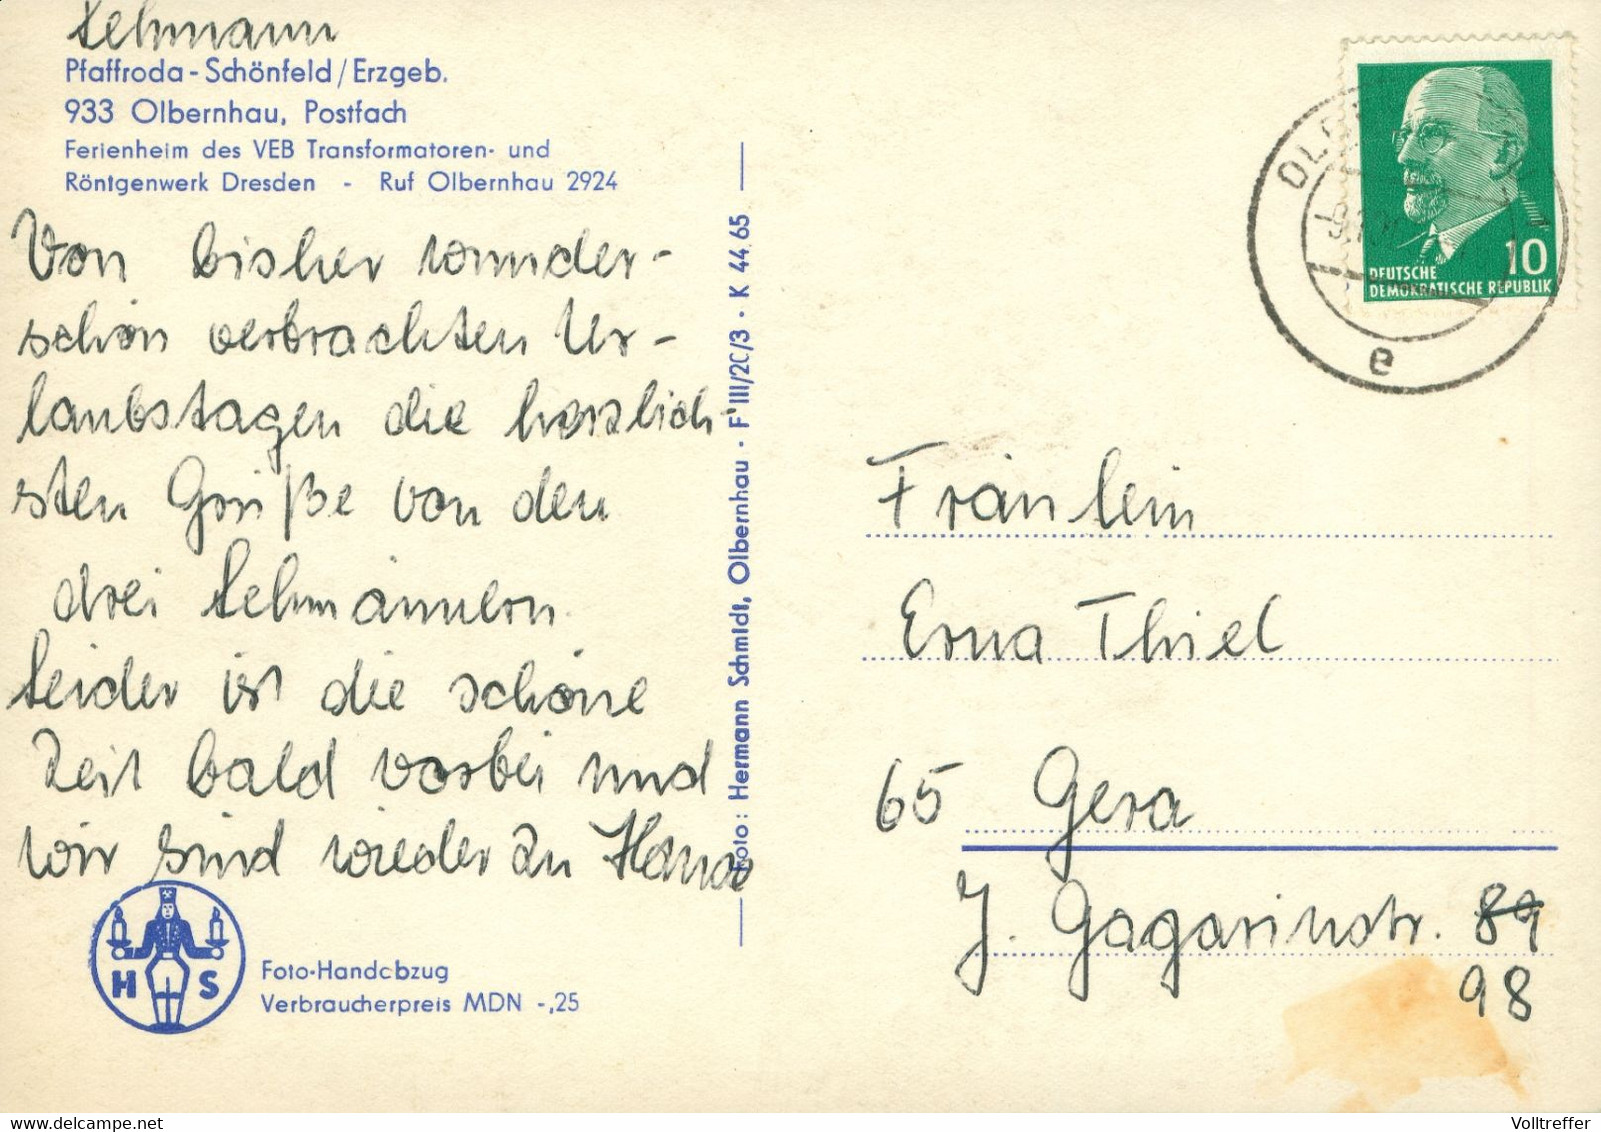 Lehmann
Pfaffroda - Schönfeld / Erzgeb.
933 Olbernhau, Postfach
Ferienheim des VEB Transformatoren- und
Röntgenwerk Dresden - Ruf Olbernhau 2924
Von bisher wunder-
schön verbrachten Ur-
laubstagen die herzlich-
sten Grüße von den
drei Lehmännern.
Leider ist die schöne
Zeit bald vorbei und
wir sind wieder zu Hause
H S
Foto-Handabzug
Verbraucherpreis MDN -,25
Foto: Hermann Schmidt, Olbernhau · F III/2C/3 · K 44 65
10
DEUTSCHE
DEMOKRATISCHE REPUBLIK
e
Fräulein
Erna Thiel
65 Gera
J. Gagarinstr. 89
98
Volltreffer